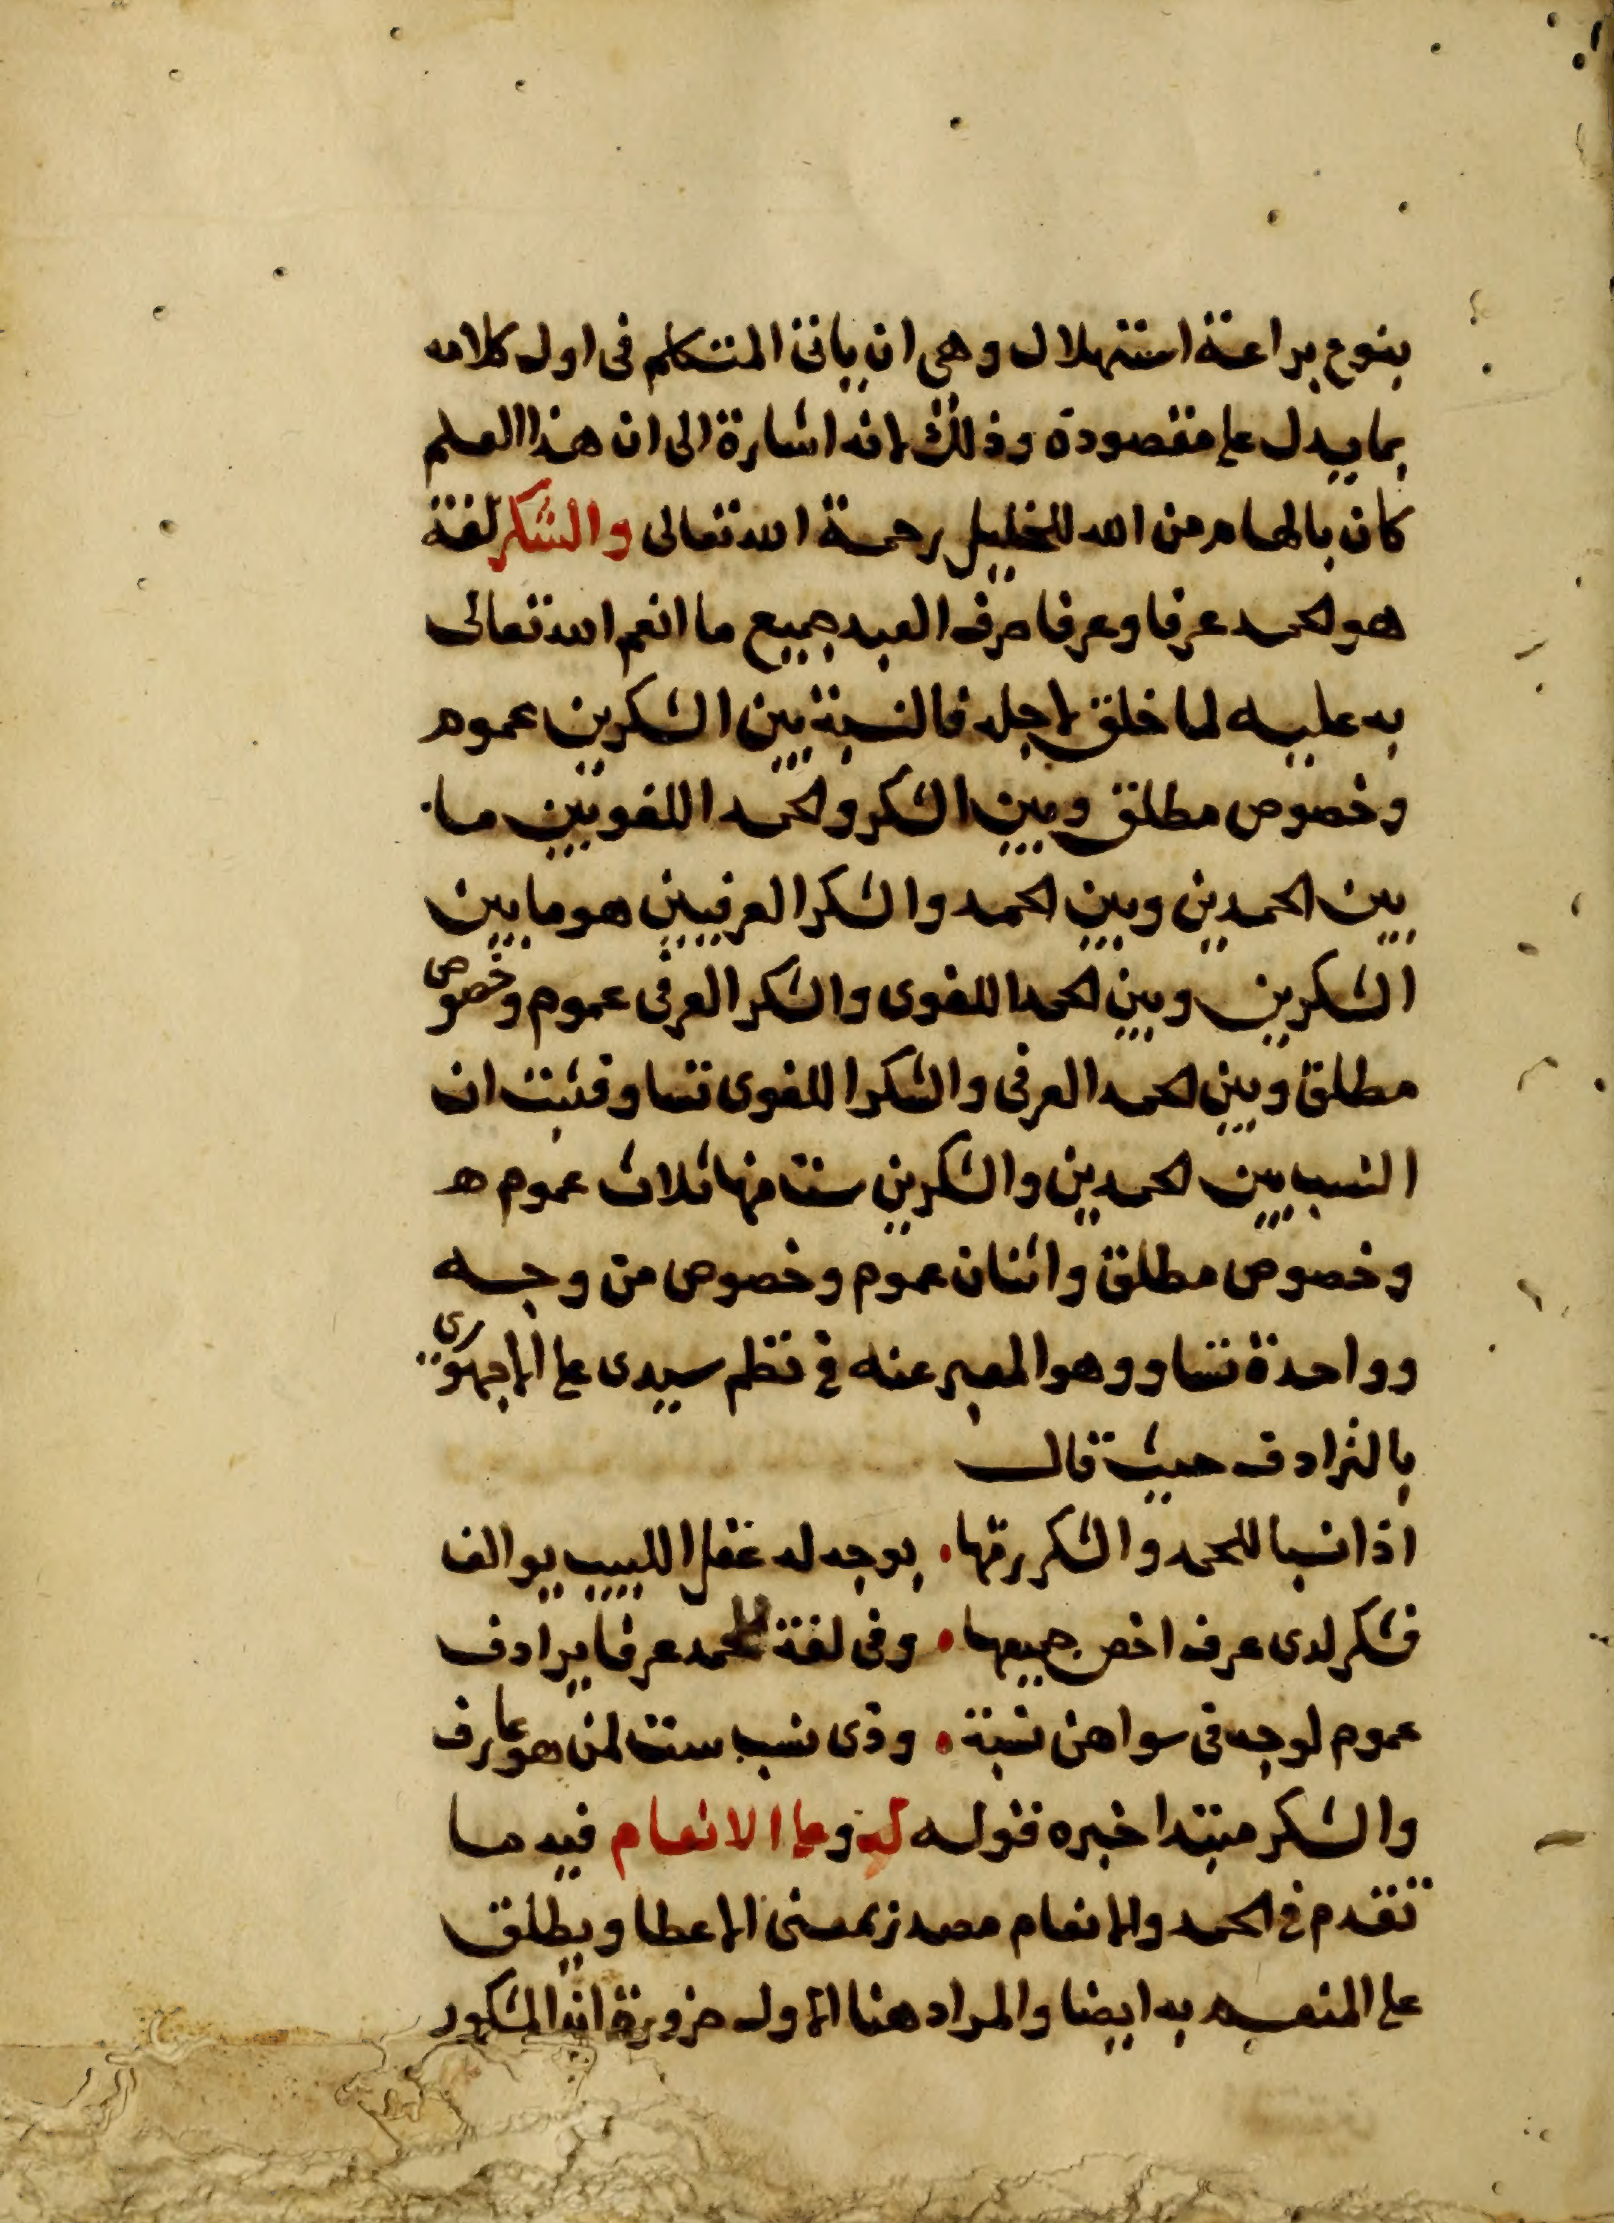 بنوع براعة استهلال وهي ان ياتى المتكلم فى اول كلامه
بما يدل على مقصودة وذلك لانه اشارة الى ان هذا العلم
كان بالهام من الله للخليل رحمة الله تعالى والشكر لغة
هو الحمد عرفا وعرفا صرف العبد جميع ما انعم الله تعالى
به عليه لما خلق لاجله فالنسبة بين الشكرين عموم
وخصوص مطلق وبين الشكر والحمد اللغويين ما
بين الحمدين وبين الحمد والشكر العرفيين هو ما بين
الشكرين وبين الحمد اللغوى والشكر العرفى عموم وخصوص
مطلق وبين الحمد العرفى والشكر اللغوى تساو فثبت ان
النسب بين الحمدين والشكرين ست منها ثلاث عموم
وخصوص مطلق واثنان عموم وخصوص من وجه
وواحدة تساو وهو المعبر عنه في نظم سيدى على الاجهورى
بالترادف حيث قال
اذا نسبا للحمد والشكر رمتها . بوجه له عقل اللبيب يوالف
فشكر لدى عرف اخص جميعها . وفى لغة للحمد عرفا يرادف
عموم لوجه فى سواهن نسبة . وذى نسب ست لمن هو عارف
والشكر مبتدا خبره قوله له وعلى الانعام فيه ما
تقدم في الحمد والانعام مصدر بمعنى الاعطا ويطلق
على المنعم به ايضا والمراد هنا الاول ضرورة انه المشكور